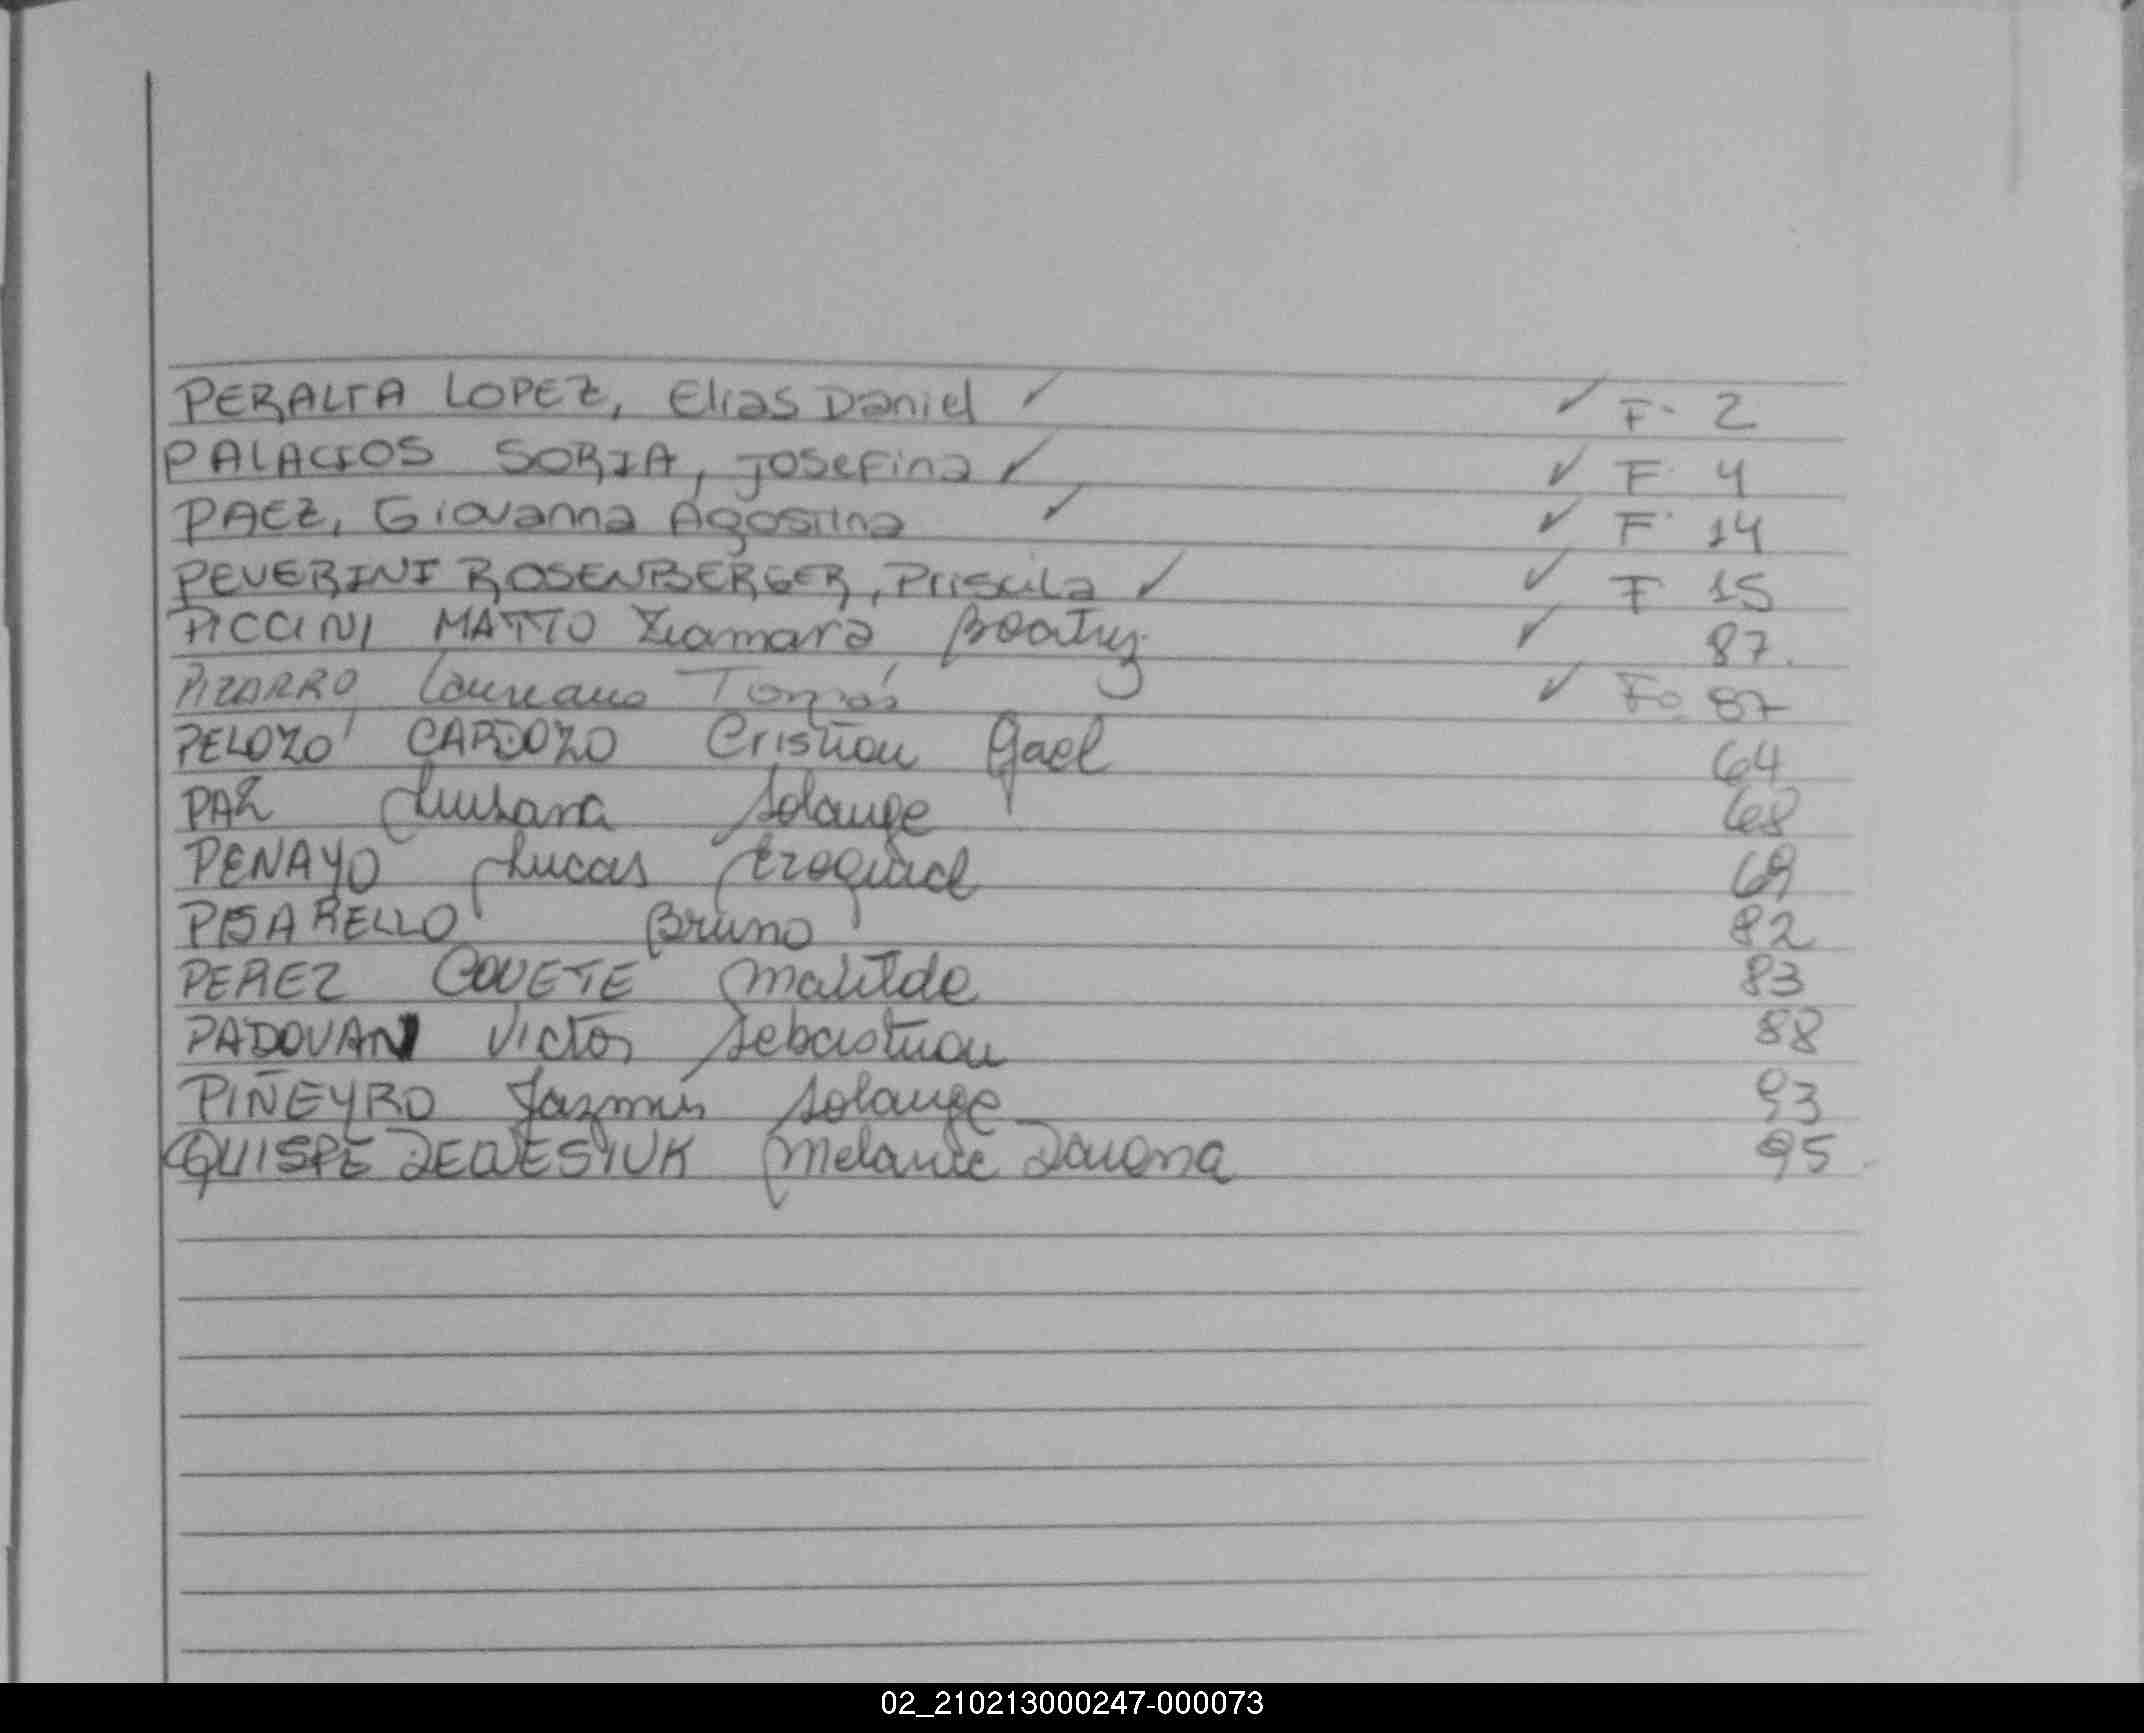 PERALTA LOPEZ, Elias Daniel ✓ ✓ F. 2
PALACIOS SORIA, Josefina ✓ ✓ F. 4
PAEZ, Giovanna Agostina ✓ ✓ F. 14
PEVERINI ROSENBERGER, Priscila ✓ ✓ F 15
PICCINI MATTO Xiamara Beatriz ✓ 87.
PIZARRO Laureano Tomás ✓ Fo. 87
PELOZO CARDOZO Cristian Gael 64
PAZ Luisana Solange 68
PENAYO Lucas Ezequiel 69
PISARELLO Bruno 82
PEREZ COVETE Matilde 83
PADOVAN Victor Sebastian 88
PIÑEYRO Jazmin Solange 93
QUISPE Melanie 95
02_210213000247-000073